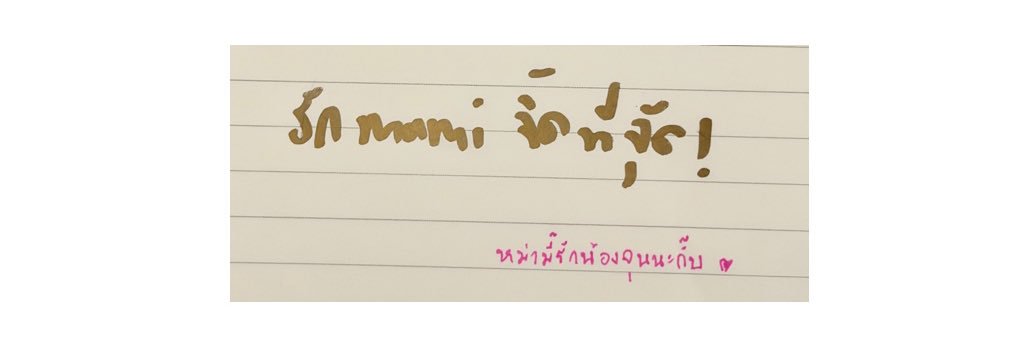 รัก mami จิ๊ดที่จุ๊ด!
หม่ามี๊รักน้องจุนนะกั๊บ ♥